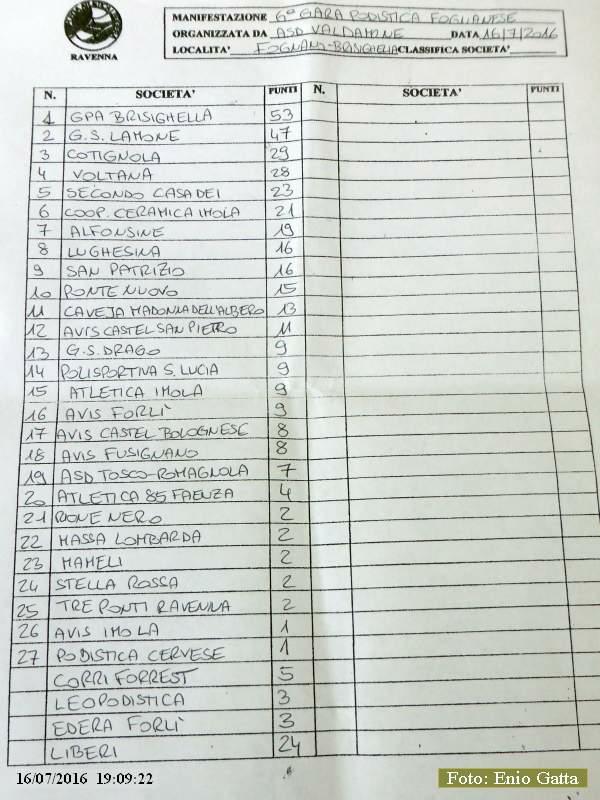 RAVENNA
MANIFESTAZIONE 6° GARA PODISTICA FOGLIANESE
ORGANIZZATA DA ASD VALDAMONE DATA 16/7/2016
LOCALITA' FOGNANO-BRISIGHELLA CLASSIFICA SOCIETA'
N. SOCIETA' PUNTI N. SOCIETA' PUNTI
1 GPA BRISIGHELLA 53
2 G.S. LAMONE 47
3 COTIGNOLA 29
4 VOLTANA 28
5 SECONDO CASADEI 23
6 COOP. CERAMICA IMOLA 21
7 ALFONSINE 19
8 LUGHESINA 16
9 SAN PATRIZIO 16
10 PONTE NUOVO 15
11 CAVEJA MADONNA DELL'ALBERO 13
12 AVIS CASTEL SAN PIETRO 11
13 G.S. DRAGO 9
14 POLISPORTIVA S. LUCIA 9
15 ATLETICA IMOLA 9
16 AVIS FORLÌ 9
17 AVIS CASTEL BOLOGNESE 8
18 AVIS FUSIGNANO 8
19 ASD TOSCO-ROMAGNOLA 7
20 ATLETICA 85 FAENZA 4
21 RIONE NERO 2
22 MASSA LOMBARDA 2
23 MAMELI 2
24 STELLA ROSSA 2
25 TRE PONTI RAVENNA 2
26 AVIS IMOLA 1
27 PODISTICA CERVESE 1
CORRI FORREST 5
LEOPODISTICA 3
EDERA FORLÌ 3
LIBERI 24
16/07/2016 19:09:22
Foto: Enio Gatta